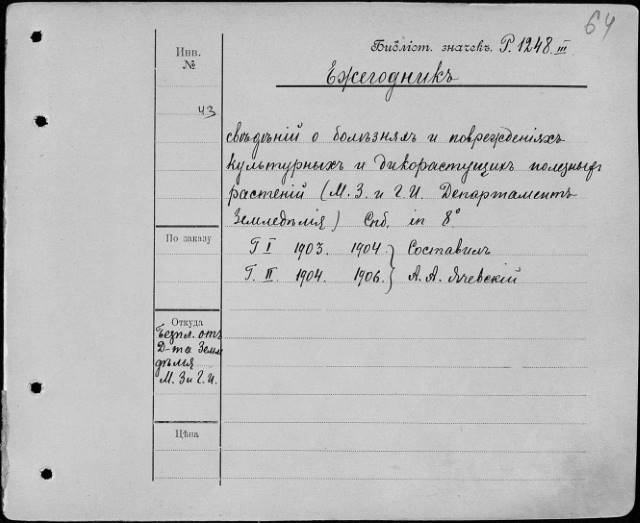 64
Библіот. значекъ. Р. 1248. III
Инв. №
Ежегодникъ
43
свѣдѣній о болѣзняхъ и поврежденіяхъ
культурныхъ и дикорастущихъ полезныхъ
растеній (М. З. и Г. И. Департаментъ
Земледѣлія) Спб. in 8°
По заказу
Г. I 1903. 1904. } Составилъ
Г. II. 1904. 1906. } А. А. Ячевскій
Откуда
Безпл. отъ
Д-та Земле
дѣлія
М. З и Г. И.
Цѣна